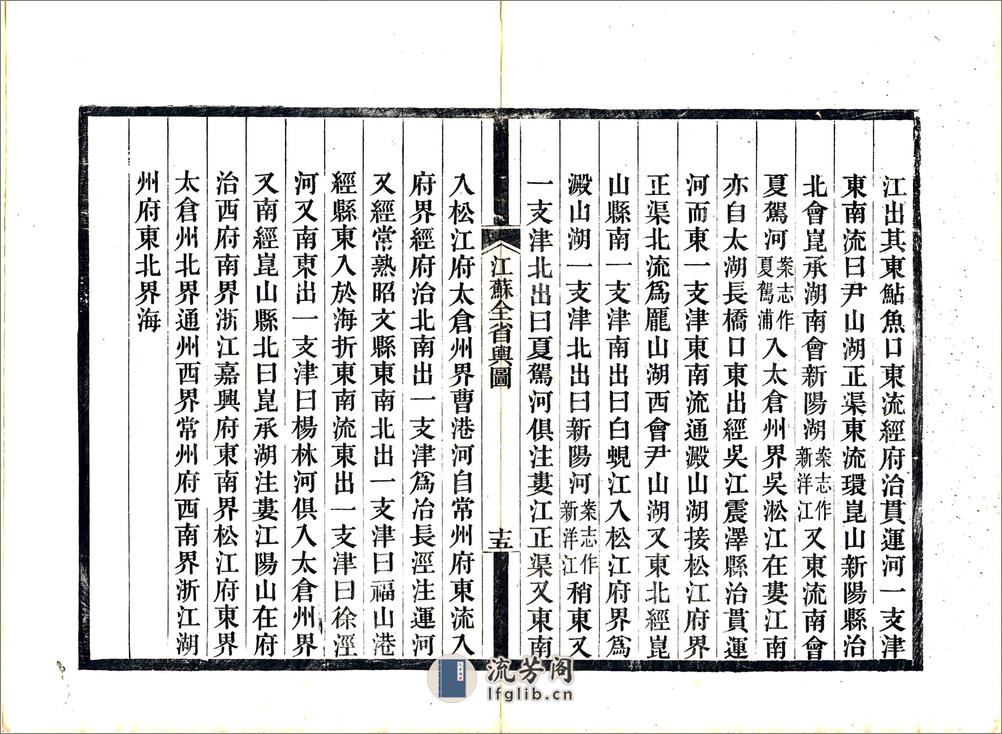 江出其東鮎魚口東流經府治貫運河一支津
東南流曰尹山湖正渠東流環崑山新陽縣治
北會崑承湖南會新陽湖案志作新洋江又東流南會
夏駕河案志作夏駕浦入太倉州界吳淞江在婁江南
亦自太湖長橋口東出經吳江震澤縣治貫運
河而東一支津東南流通澱山湖接松江府界
正渠北流爲龎山湖西會尹山湖又東北經崑
山縣南一支津南出曰白蜆江入松江府界爲
澱山湖一支津北出曰新陽河案志作新洋江稍東又
一支津北出曰夏駕河俱注婁江正渠又東南
江蘇全省輿圖
十五
入松江府太倉州界曹港河自常州府東流入
府界經府治北南出一支津爲冶長涇注運河
又經常熟昭文縣東南北出一支津曰福山港
經縣東入於海折東南流東出一支津曰徐涇
河又南東出一支津曰楊林河俱入太倉州界
又南經崑山縣北曰崑承湖注婁江陽山在府
治西府南界浙江嘉興府東南界松江府東界
太倉州北界通州西界常州府西南界浙江湖
州府東北界海
流芳阁
lfglib.cn